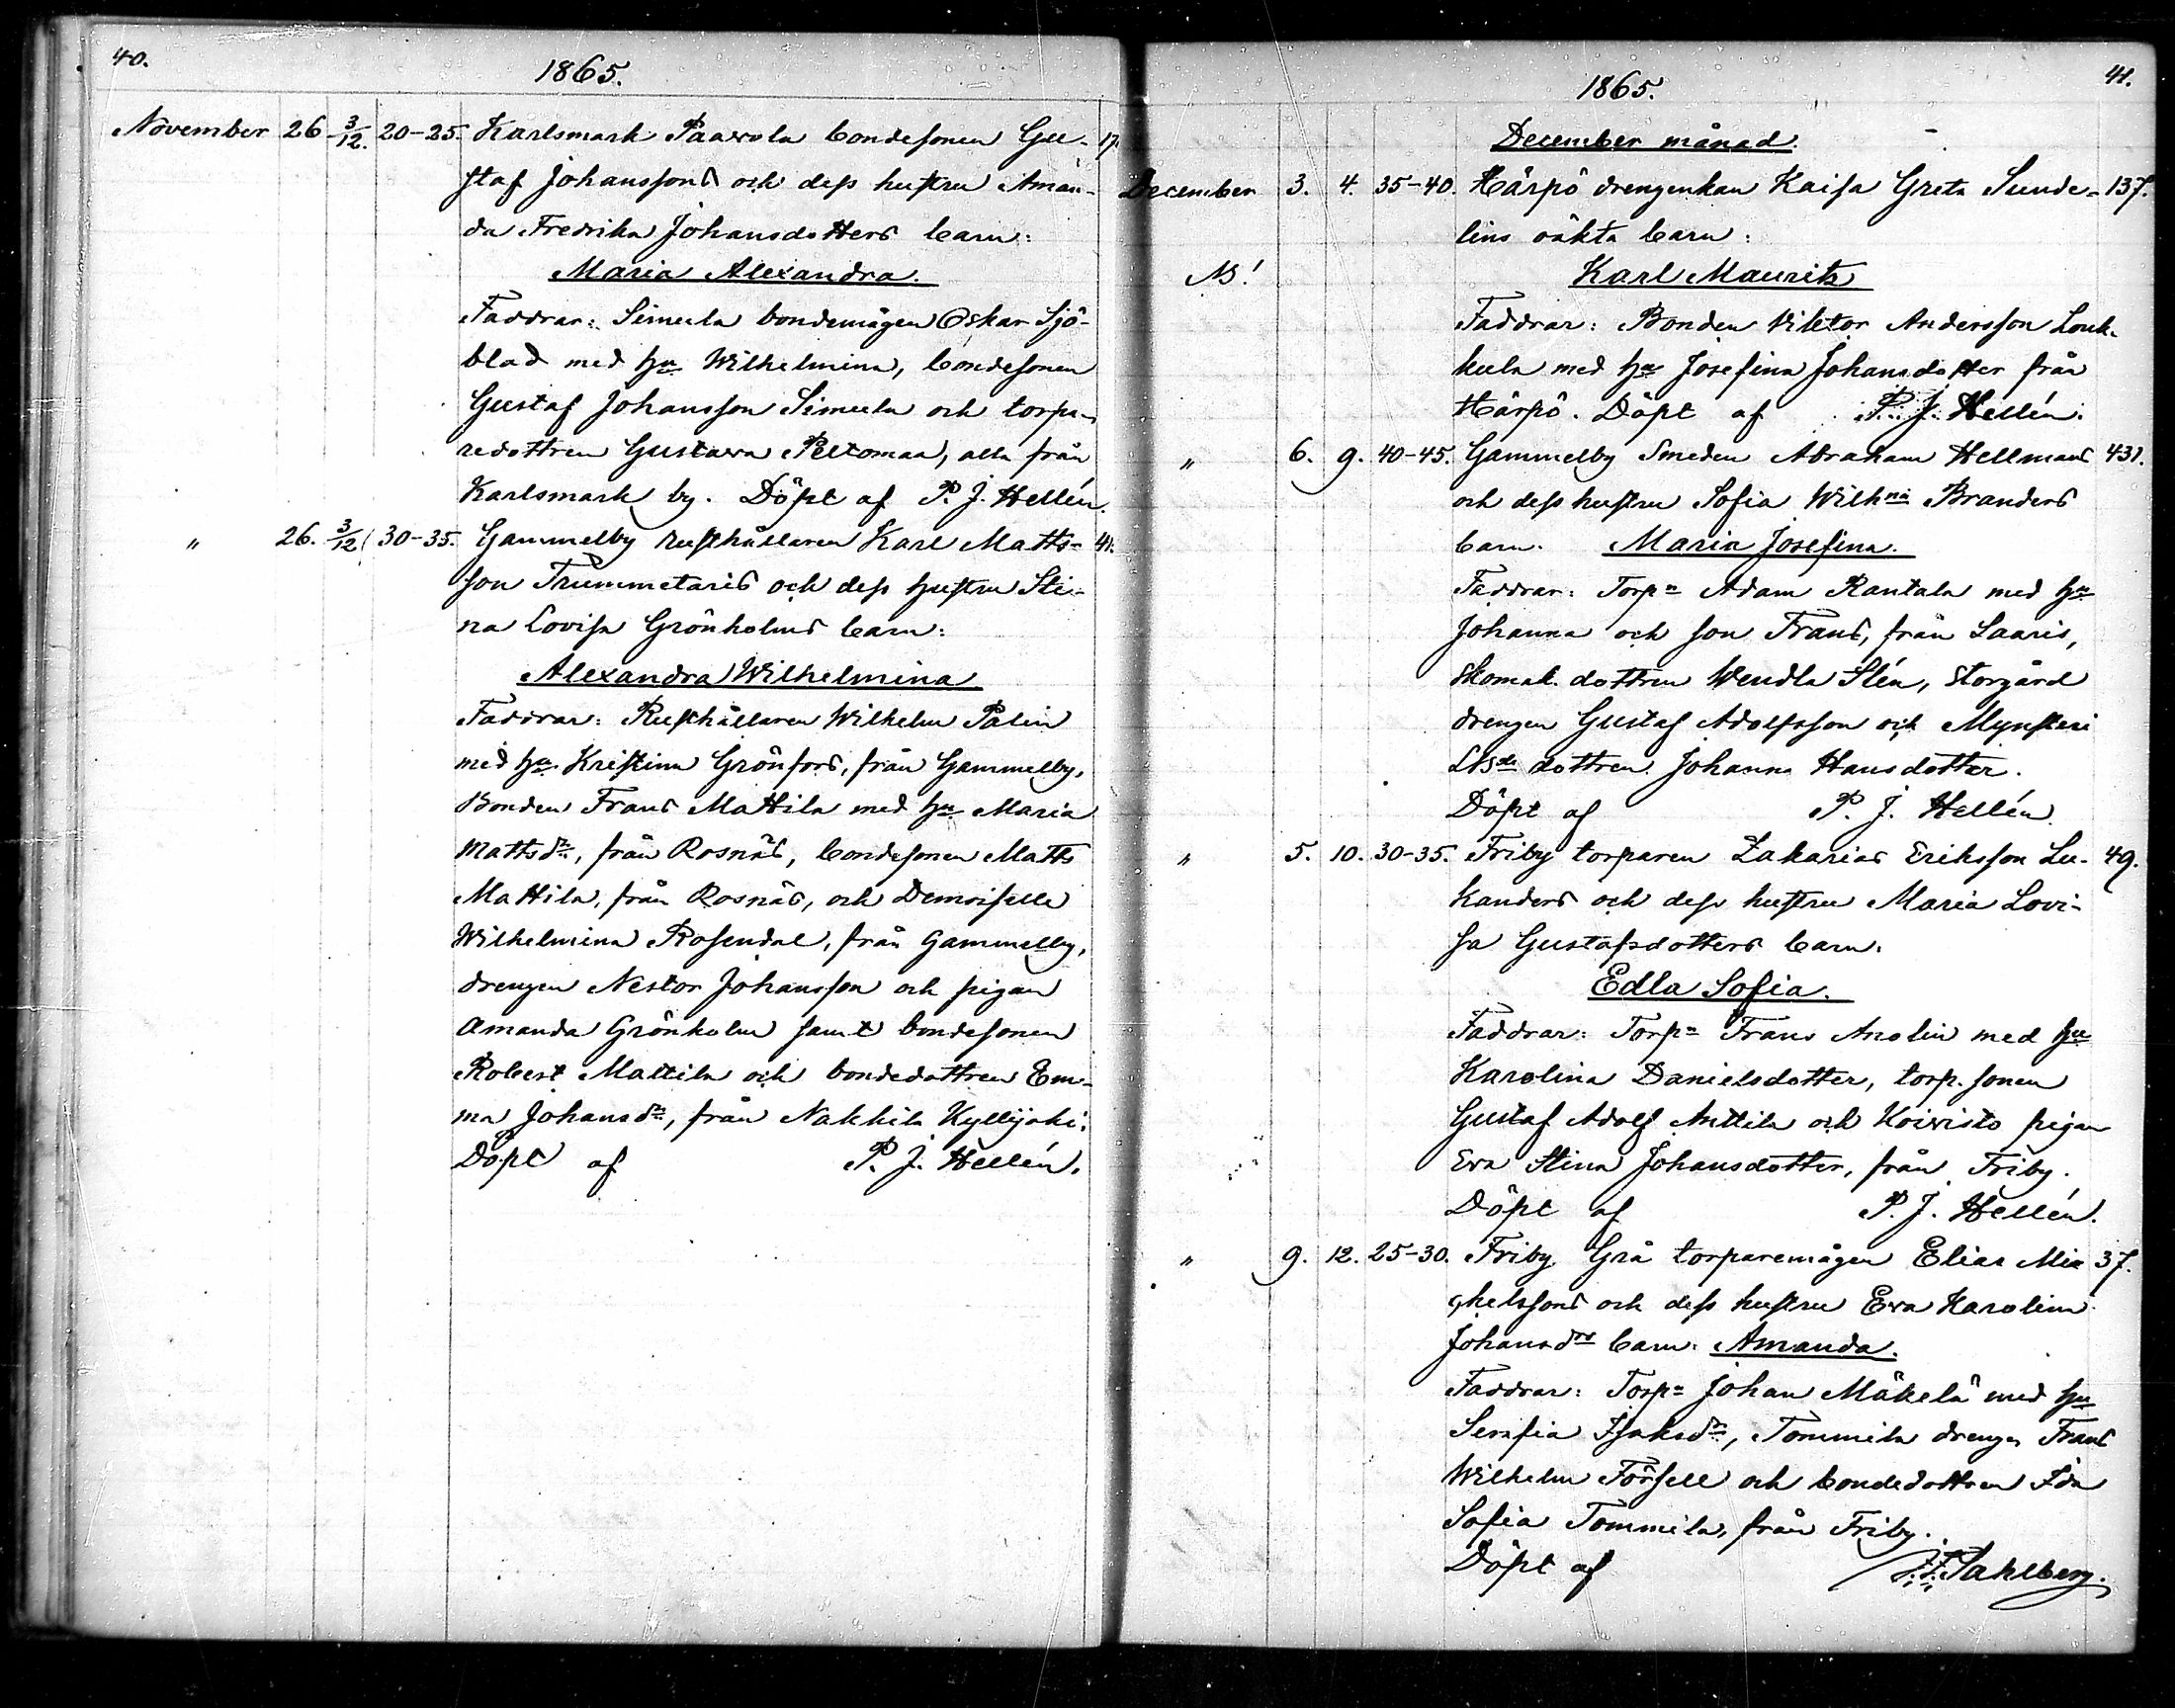 40.
1865.
November 26 3/12. 20-25. Karlsmark Paavola bondesonen Gu- 17.
staf Johanssons och dess hustru Aman-
da Fredrika Johansdotters barn:
Maria Alexandra.
Faddrar: Simula bondemågen Oskar Sjö-
blad med hu Wilhelmina, bondesonen
Gustaf Johansson Simula och torpa-
redottren Gustava Peltomaa, alla från
Karlsmark by. Döpt af P. J. Hellén.
" 26. 3/12 30-35. Gammelby rusthållaren Karl Matts- 41.
son Trummetaris och dess hustru Sti-
na Lovisa Grönholms barn:
Alexandra Wilhelmina
Faddrar: Rusthållaren Wilhelm Palin
med hu Kristina Grönfors, från Gammelby,
Bonden Frans Mattila med hu Maria
Mattsdr, från Rosnäs, bondesonen Matts
Mattila, från Rosnäs, och Demoiselle
Wilhelmina Rosendal, från Gammelby,
drengen Nestor Johansson och pigan
Amanda Grönholm samt bondesonen
Robert Mattila och bondedottren Em-
ma Johansdr, från Nakkila Kyllijoki.
Döpt af P. J. Hellén.
41.
1865.
December månad.
December 3. 4. 35-40. Härpö drengenkan Kaisa Greta Sunde- 137.
lins oäkta barn:
NB! Karl Mauritz
Faddrar: Bonden Viktor Andersson Louk-
kula med hu Josefina Johansdotter från
Härpö. Döpt af P. J. Hellén.
" 6. 9. 40-45. Gammelby Smeden Abraham Hellmans 431.
och dess hustru Sofia Wilhna Branders
barn: Maria Josefina.
Faddrar: Torpn Adam Rantala med hu
Johanna och son Frans, från Laaris,
skomak. dottren Wendla Stén, Storgård
drengen Gustaf Adolfsson och Mynsteri
dottren Johanna Hansdotter.
Döpt af P. J. Hellén
" 5. 10. 30-35. Friby torparen Zakarias Eriksson Lu- 49.
kanders och dess hustru Maria Lovi-
sa Gustafsdotters barn:
Edla Sofia.
Faddrar: Torpn Frans Anolin med hu
Karolina Danielsdotter, torp. sonen
Gustaf Adolf Anttila och Koivisto pigan
Eva Stina Johansdotter, från Friby.
Döpt af P. J. Hellén.
" 9. 12. 25-30. Friby Grå torparemågen Elias Mi- 37.
chelssons och dess hustru Eva Karolina
Johansdrs barn: Amanda.
Faddrar: Torpn Johan Mäkelä med hu
Serafia Isaksdr, Tommila drengen Frans
Wilhelm Försell och bondedottren Ida
Sofia Tommila, från Friby.
Döpt af Sahlberg.